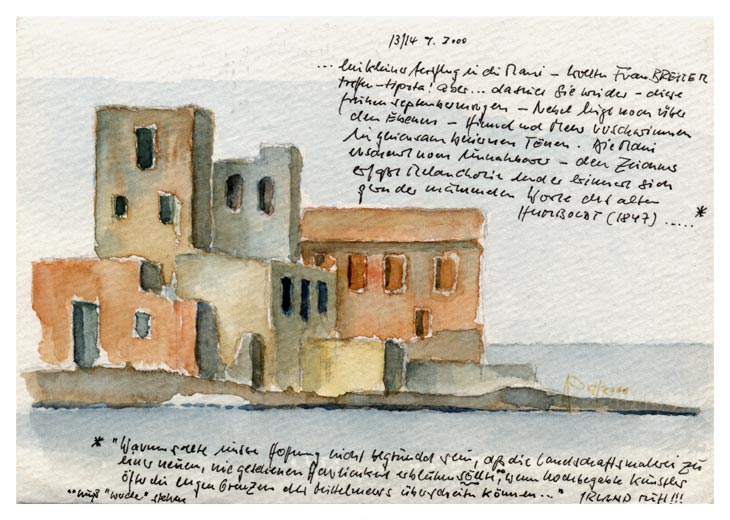 13/14 9. 2000
... ein kleiner Ausflug in die Mani – wollten Frau BREUER
treffen – tipota! aber... da sind sie wieder – diese
frühen Septembermorgen – Nebel liegt noch über
den Ebenen – Himmel und Meer verschwimmen
in gemeinsam bleiernen Tönen. Die Mani
erscheint nun unnahbarer – den Zeichner
erfasst Melancholie und er erinnert sich
gern der mahnenden Worte des alten
HUMBOLDT (1847) ..... *
* "Warum sollte unsere Hoffnung nicht begründet sein, daß die Landschaftsmalerei zu
einer neuen, nie gesehenen Herrlichkeit erblühen sollte, wenn hochbegabte Künstler
öfter die engen Grenzen des Mittelmeers überschreiten können..." IRLAND RUFT!!!
muß "werde" stehen
2000